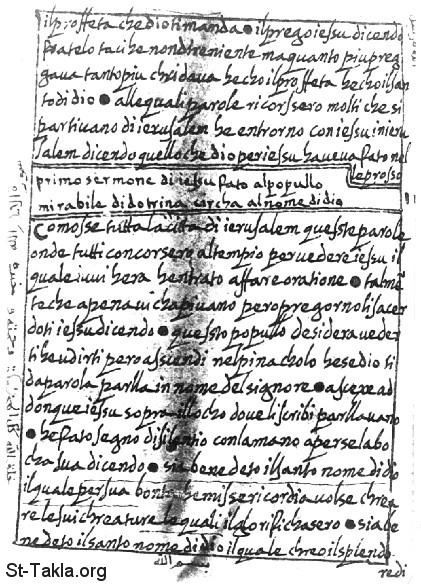 ilproffeta che dio ti manda • il prego iessu dicendo
fratelo taci he non dir eniente ma quanto piu preg
gava tanto piu chridava hecho il proffeta hecho il san
to di dio • alle quali parole ricorssero molti che si
partivano di ierusalem he entorno con iessu in ieru
salem dicendo quello che dio per iessu haveva fato nel
leprosso
primo sermone di iessu fato al popullo
mirabile di dotrina circha al nome di dio
Comosse tutta la cita di ierusalem quesste parole
onde tutti concorsero al tempio per vedere iessu il
quale iui hera hentrato affare oratione • talmē
te che apena vi chapivano pero pregorno li sacer
doti iessu dicendo • quessto popullo desidera veder
ti he udirti pero assiendi nel pinacholo he se dio ti
da parola parlla in nome del signore • ascexe ad
donque iessu sopra illocho dove li scribi parllavano
• he fato segno di silentio con la mano aperse la bo
cha sua dicendo • sia benedeto il santo nome di dio
il quale per sua bonta he misericordia volse chrea
re le sui chreature le quali il glorifichasero • sia be
nedeto il santo nome di dio il quale chreo il splendo
redi
St-Takla.org